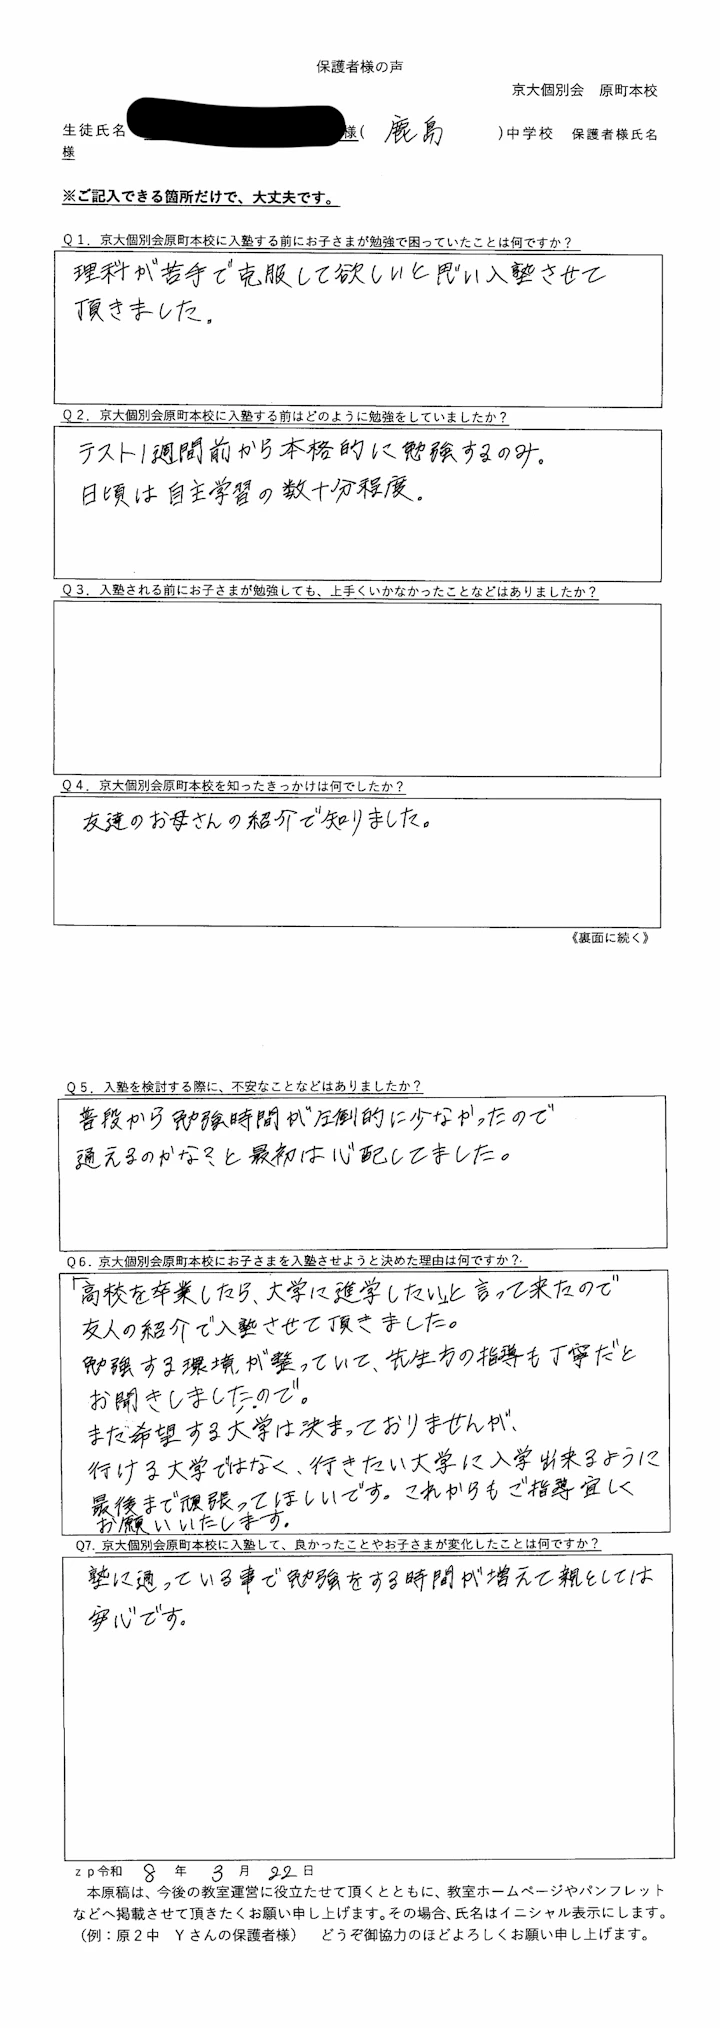 保護者様の声
京大個別会　原町本校
生徒氏名　様(　鹿島　)中学校　保護者様氏名
様
※ご記入できる箇所だけで、大丈夫です。
Q1．京大個別会原町本校に入塾する前にお子さまが勉強で困っていたことは何ですか？
理科が苦手で克服して欲しいと思い入塾させて
頂きました。
Q2．京大個別会原町本校に入塾する前はどのように勉強をしていましたか？
テスト1週間前から本格的に勉強するのみ。
日頃は自主学習の数十分程度。
Q3．入塾される前にお子さまが勉強しても、上手くいかなかったことなどはありましたか？
Q4．京大個別会原町本校を知ったきっかけは何でしたか？
友達のお母さんの紹介で知りました。
《裏面に続く》
Q5．入塾を検討する際に、不安なことなどはありましたか？
普段から勉強時間が圧倒的に少なかったので
通えるのかな？と最初は心配してました。
Q6．京大個別会原町本校にお子さまを入塾させようと決めた理由は何ですか？
「高校を卒業したら、大学に進学したい」と言って来たので
友人の紹介で入塾させて頂きました。
勉強する環境が整っていて、先生方の指導も丁寧だと
お聞きしましたので。
まだ希望する大学は決まっておりませんが、
行ける大学ではなく、行きたい大学に入学出来るように
最後まで頑張ってほしいです。これからもご指導宜しく
お願いいたします。
Q7. 京大個別会原町本校に入塾して、良かったことやお子さまが変化したことは何ですか？
塾に通っている事で勉強をする時間が増えて親としては
安心です。
zp令和　8　年　3　月　22日
本原稿は、今後の教室運営に役立たせて頂くとともに、教室ホームページやパンフレット
などへ掲載させて頂きたくお願い申し上げます。その場合、氏名はイニシャル表示にします。
（例：原２中　Ｙさんの保護者様）　どうぞ御協力のほどよろしくお願い申し上げます。